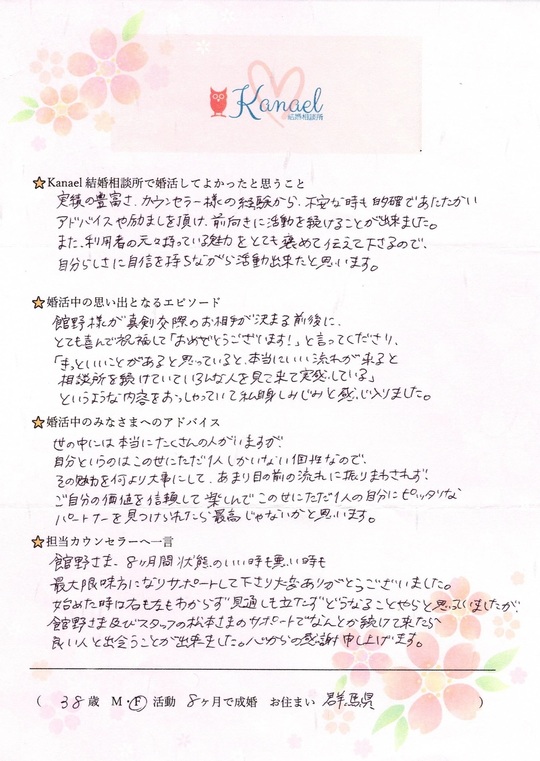 Kanael
結婚相談所
Kanael 結婚相談所で婚活してよかったと思うこと
実績の豊富さ、カウンセラー様の経験から、不安な時も的確であたたかい
アドバイスや励ましを頂け、前向きに活動を続けることが出来ました。
また、利用者の元々持っている魅力をとても褒めて伝えて下さるので、
自分らしさに自信を持ちながら活動出来たと思います。
婚活中の思い出となるエピソード
館野様が真剣交際のお相手が決まる前後に、
とても喜んで祝福して「おめでとうございます!」と言ってくださり、
「きっといいことがあると思っていると、本当にいい流れが来ると
相談所を続けていていろんな人を見て来て実感している」
というような内容をおっしゃっていて私自身しみじみと感じ入りました。
婚活中のみなさまへのアドバイス
世の中には本当にたくさんの人がいますが
自分というのはこの世にただ1人しかいない個性なので、
その魅力を何より大事にして、あまり目の前の流れに振りまわされず、
ご自分の価値を信頼して楽しんでこの世にただ1人の自分にピッタリな
パートナーを見つけられたら最高じゃないかと思います。
担当カウンセラーへ一言
館野さま、8ヶ月間状態のいい時も悪い時も
最大限味方になりサポートして下さり大変ありがとうございました。
始めた時は右も左もわからず見通しも立たずどうなることやらと思っていましたが、
館野さま及びスタッフの松本さまのサポートでなんとか続けて来たら
良い人と出会うことが出来ました。心からの感謝申し上げます。
( 38歳 M・F 活動 8ヶ月で成婚 お住まい 群馬県 )